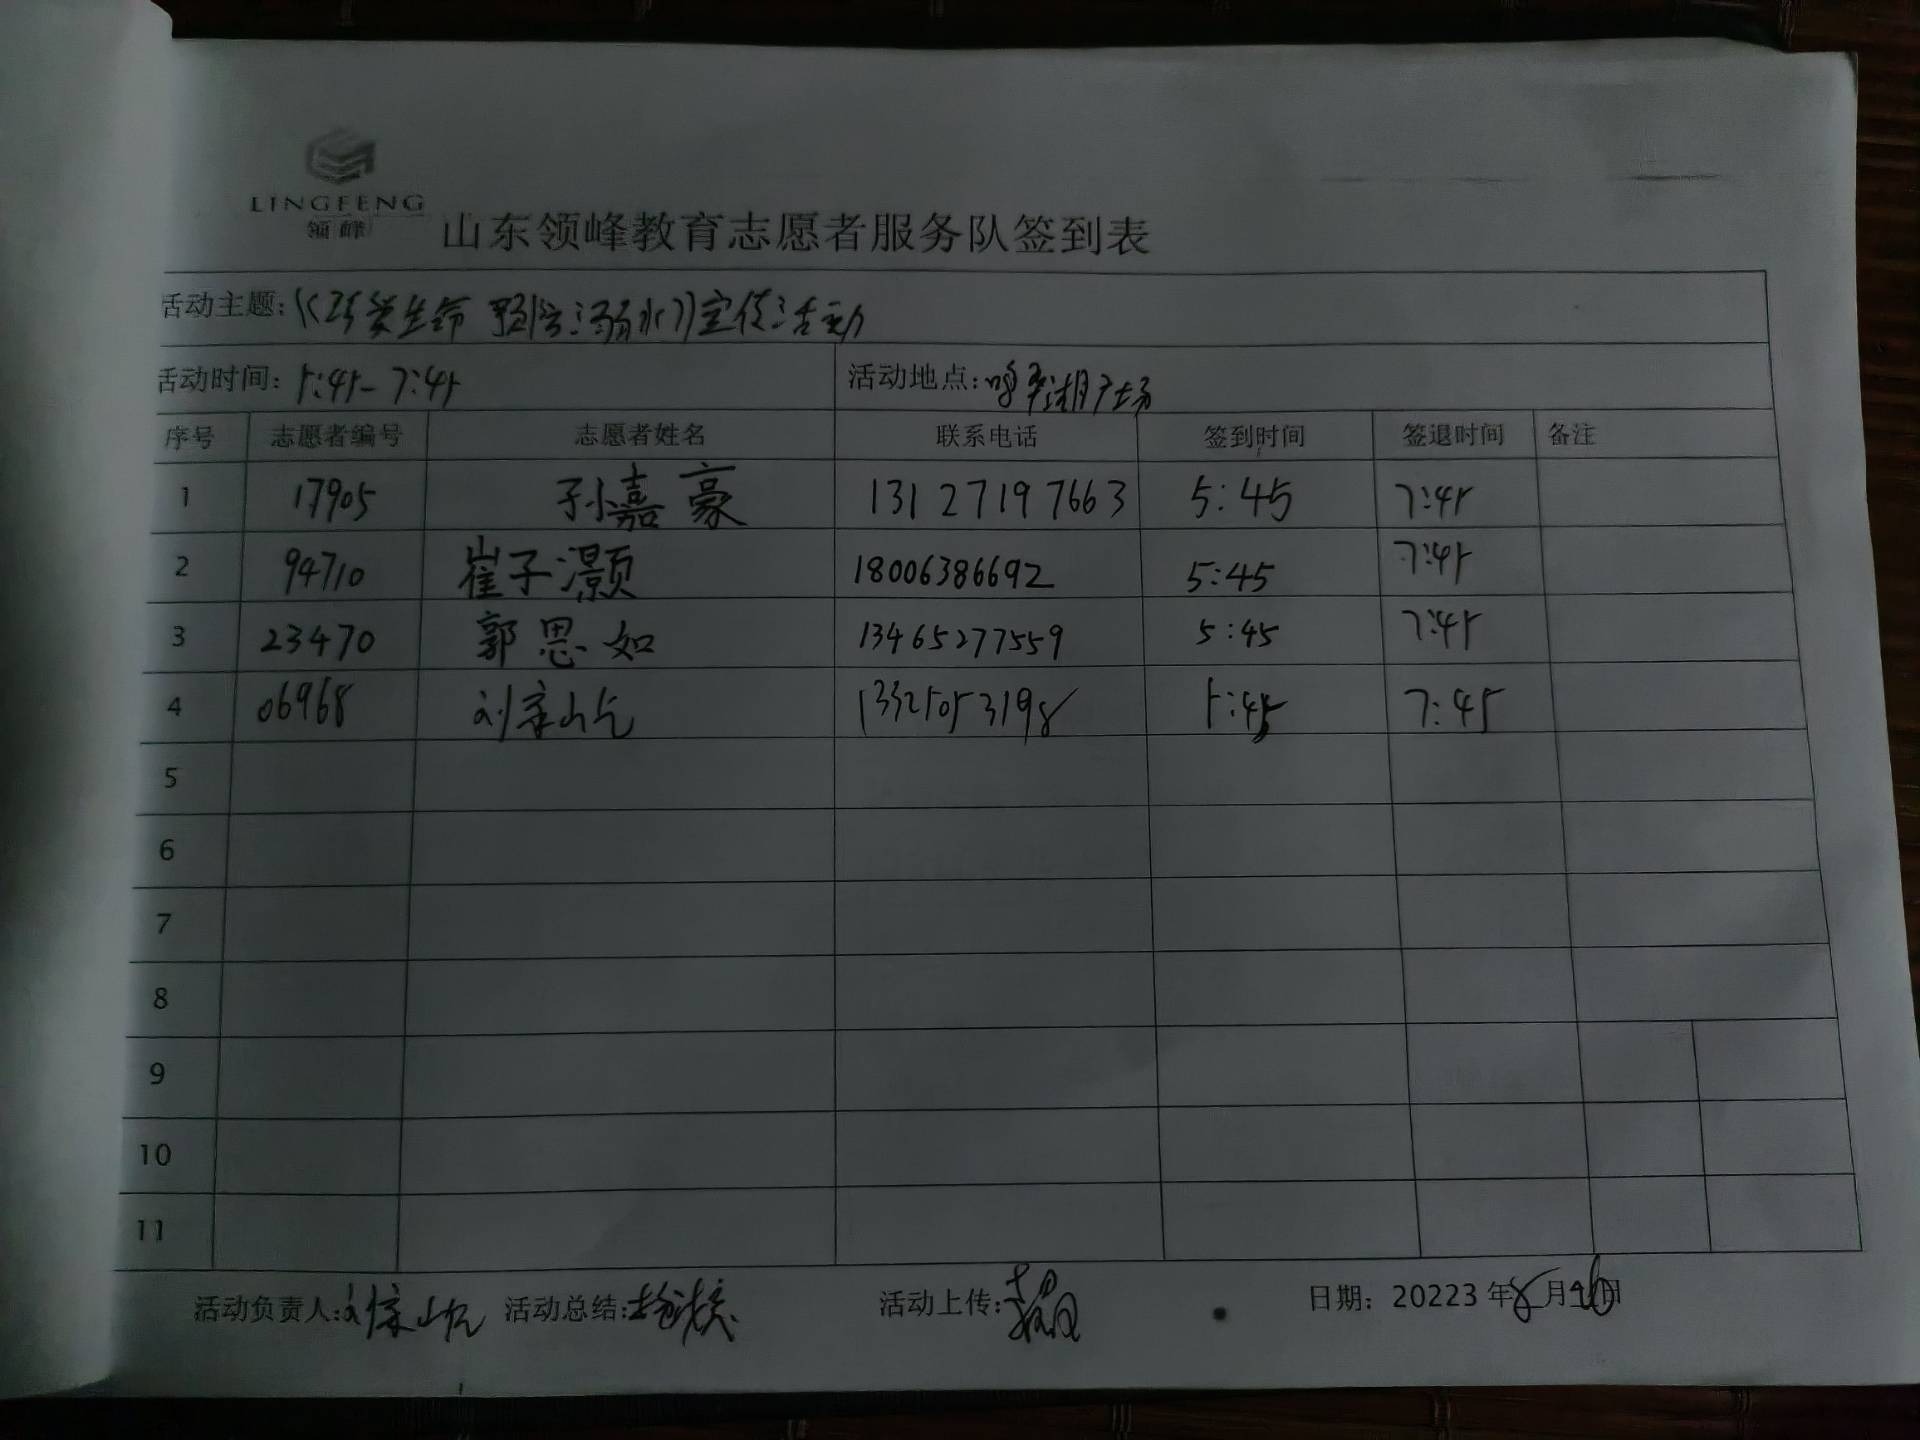 LINGFENG
领峰
山东领峰教育志愿者服务队签到表
活动主题:《珍爱生命 预防溺水》宣传活动
活动时间: 5:45-7:45 活动地点: 鸣翠湖广场
序号 志愿者编号 志愿者姓名 联系电话 签到时间 签退时间 备注
1 17905 孙嘉豪 13127197663 5:45 7:45
2 94710 崔子灏 18006386692 5:45 7:45
3 23470 郭思如 13465277559 5:45 7:45
4 06968 刘 13325053198 5:45 7:45
5
6
7
8
9
10
11
活动负责人: 刘 活动总结: 活动上传: 日期: 20223 年8月26日